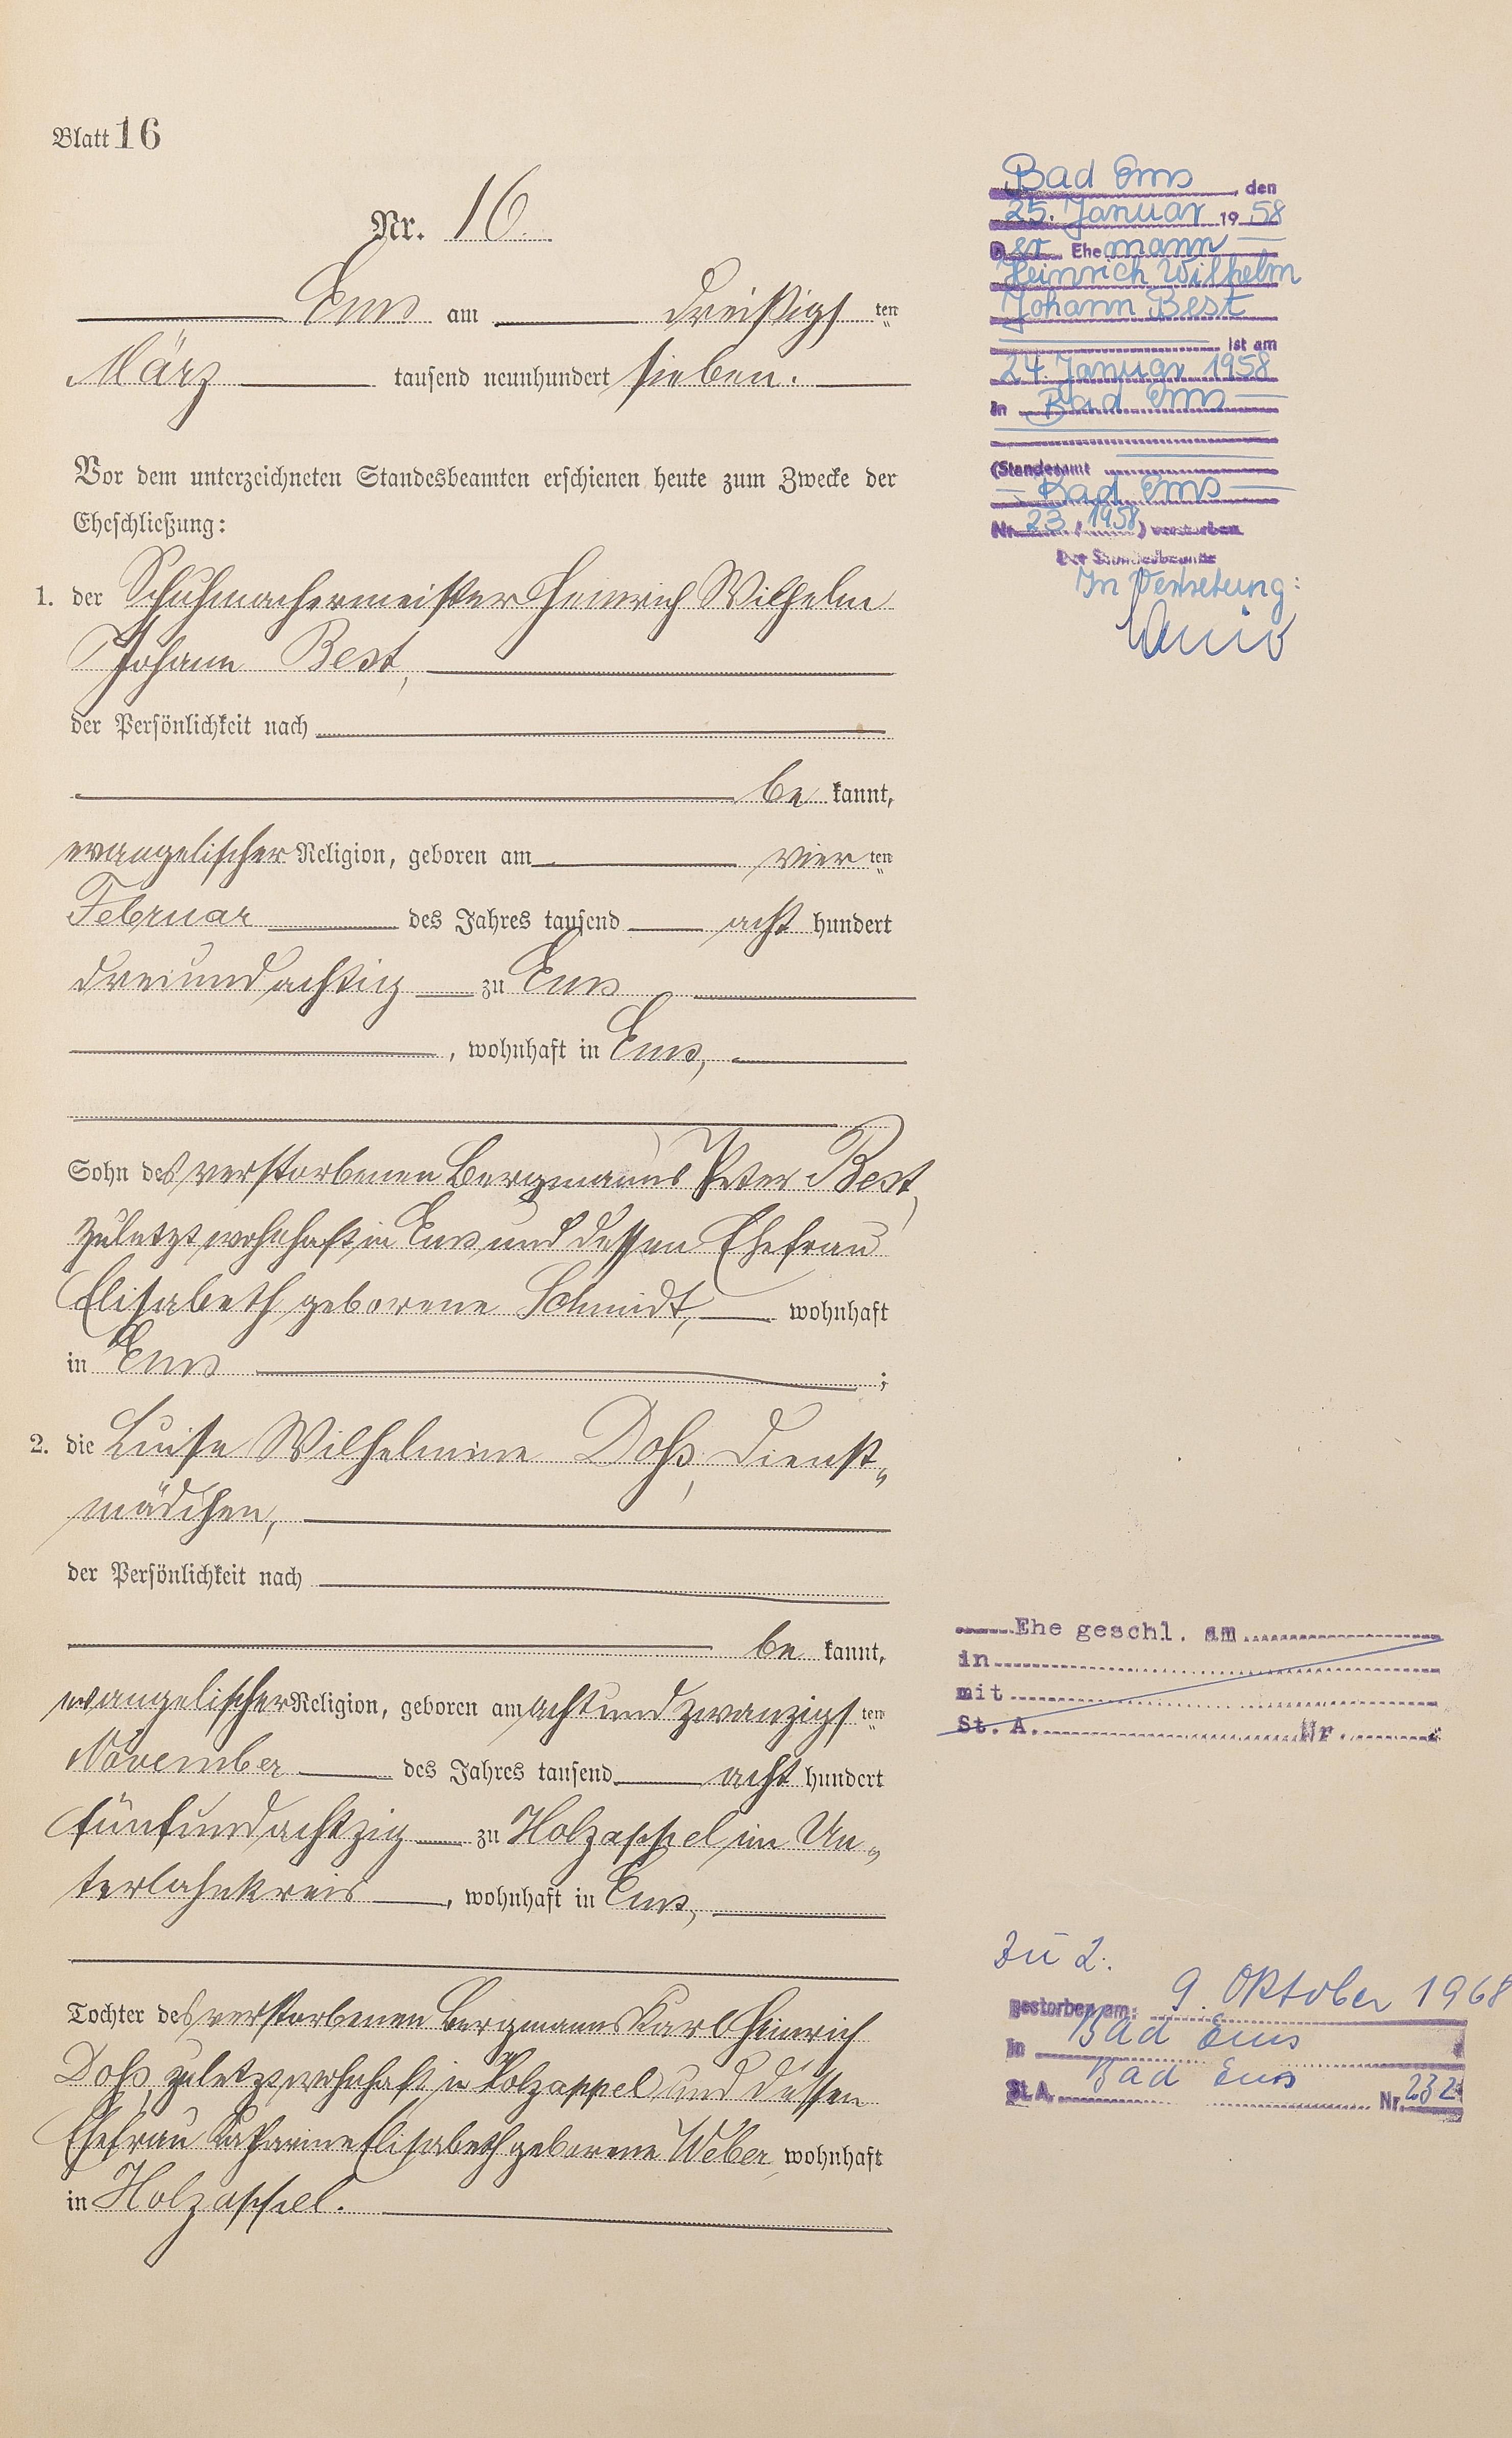 Blatt 16
Nr. 16.
Ems am dreißigsten
März tausend neunhundert sieben.
Vor dem unterzeichneten Standesbeamten erschienen heute zum Zwecke der
Eheschließung:
1. der Schuhmachermeister Heinrich Wilhelm
Johann Best,
der Persönlichkeit nach
be kannt,
evangelischer Religion, geboren am vier ten
Februar des Jahres tausend acht hundert
dreiundachtzig zu Ems
, wohnhaft in Ems,
Sohn des verstorbenen Bergmanns Peter Best,
zuletzt wohnhaft in Ems und dessen Ehefrau
Elisabeth, geborene Schmidt, wohnhaft
in Ems ;
2. die Luise Wilhelmine Dohs, Dienst„
mädchen,
der Persönlichkeit nach
be kannt,
evangelischer Religion, geboren am achtundzwanzigs ten
November des Jahres tausend acht hundert
fünfundachtzig zu Holzappel im Un„
terlahnkreis, wohnhaft in Ems,
Tochter des verstorbenen Bergmanns Karl Heinrich
Dohs, zuletzt wohnhaft in Holzappel und dessen
Ehefrau Katharine Elisabeth geborene Weber, wohnhaft
in Holzappel.
Bad Ems, den
25. Januar 1958
Der Ehemann
Heinrich Wilhelm
Johann Best
ist am
24. Januar 1958
in Bad Ems
(Standesamt
Bad Ems
Nr. 23 / 1958) verstorben
Der Standesbeamte
In Vertretung:
Ehe geschl. am
in
mit
St. A. Nr.
Zu 2.
gestorben am: 9. Oktober 1968
in Bad Ems
St. A. Bad Ems Nr. 232